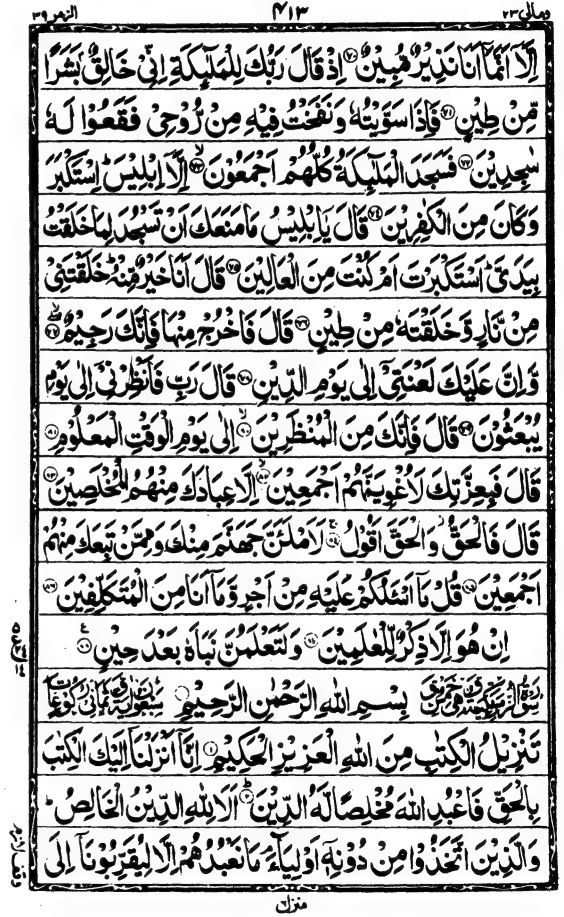 ومالی ۲۳ ۴۱۳ الزمر ۳۹
اِلَّاۤ اَنَّمَاۤ اَنَا نَذِیْرٌ مُّبِیْنٌ ۝۷۰ اِذْ قَالَ رَبُّكَ لِلْمَلٰٓئِكَةِ اِنِّیْ خَالِقٌۢ بَشَرًا
مِّنْ طِیْنٍ ۝۷۱ فَاِذَا سَوَّیْتُهٗ وَنَفَخْتُ فِیْهِ مِنْ رُّوْحِیْ فَقَعُوْا لَهٗ
سٰجِدِیْنَ ۝۷۲ فَسَجَدَ الْمَلٰٓئِكَةُ كُلُّهُمْ اَجْمَعُوْنَ ۝۷۳ۙ اِلَّاۤ اِبْلِیْسَ ؕ اِسْتَكْبَرَ
وَكَانَ مِنَ الْكٰفِرِیْنَ ۝۷۴ قَالَ یٰۤاِبْلِیْسُ مَا مَنَعَكَ اَنْ تَسْجُدَ لِمَا خَلَقْتُ
بِیَدَیَّ ؕ اَسْتَكْبَرْتَ اَمْ كُنْتَ مِنَ الْعَالِیْنَ ۝۷۵ قَالَ اَنَا خَیْرٌ مِّنْهُ ؕ خَلَقْتَنِیْ
مِنْ نَّارٍ وَّخَلَقْتَهٗ مِنْ طِیْنٍ ۝۷۶ قَالَ فَاخْرُجْ مِنْهَا فَاِنَّكَ رَجِیْمٌ ۝۷۷ۚۖ
وَّاِنَّ عَلَیْكَ لَعْنَتِیْۤ اِلٰی یَوْمِ الدِّیْنِ ۝۷۸ قَالَ رَبِّ فَاَنْظِرْنِیْۤ اِلٰی یَوْمِ
یُبْعَثُوْنَ ۝۷۹ قَالَ فَاِنَّكَ مِنَ الْمُنْظَرِیْنَ ۝۸۰ۙ اِلٰی یَوْمِ الْوَقْتِ الْمَعْلُوْمِ ۝۸۱
قَالَ فَبِعِزَّتِكَ لَاُغْوِیَنَّهُمْ اَجْمَعِیْنَ ۝۸۲ۙ اِلَّا عِبَادَكَ مِنْهُمُ الْمُخْلَصِیْنَ ۝۸۳
قَالَ فَالْحَقُّ ؗ وَالْحَقَّ اَقُوْلُ ۝۸۴ۚ لَاَمْلَئَنَّ جَهَنَّمَ مِنْكَ وَمِمَّنْ تَبِعَكَ مِنْهُمْ
اَجْمَعِیْنَ ۝۸۵ قُلْ مَاۤ اَسْئَلُكُمْ عَلَیْهِ مِنْ اَجْرٍ وَّمَاۤ اَنَا مِنَ الْمُتَكَلِّفِیْنَ ۝۸۶
اِنْ هُوَ اِلَّا ذِكْرٌ لِّلْعٰلَمِیْنَ ۝۸۷ وَلَتَعْلَمُنَّ نَبَاَهٗ بَعْدَ حِیْنٍ ۝۸۸
بِسْمِ اللّٰهِ الرَّحْمٰنِ الرَّحِیْمِ
تَنْزِیْلُ الْكِتٰبِ مِنَ اللّٰهِ الْعَزِیْزِ الْحَكِیْمِ ۝۱ اِنَّاۤ اَنْزَلْنَاۤ اِلَیْكَ الْكِتٰبَ
بِالْحَقِّ فَاعْبُدِ اللّٰهَ مُخْلِصًا لَّهُ الدِّیْنَ ۝۲ؕ اَلَا لِلّٰهِ الدِّیْنُ الْخَالِصُ ؕ
وَالَّذِیْنَ اتَّخَذُوْا مِنْ دُوْنِهٖۤ اَوْلِیَآءَ مَا نَعْبُدُهُمْ اِلَّا لِیُقَرِّبُوْنَاۤ اِلَی
منزل